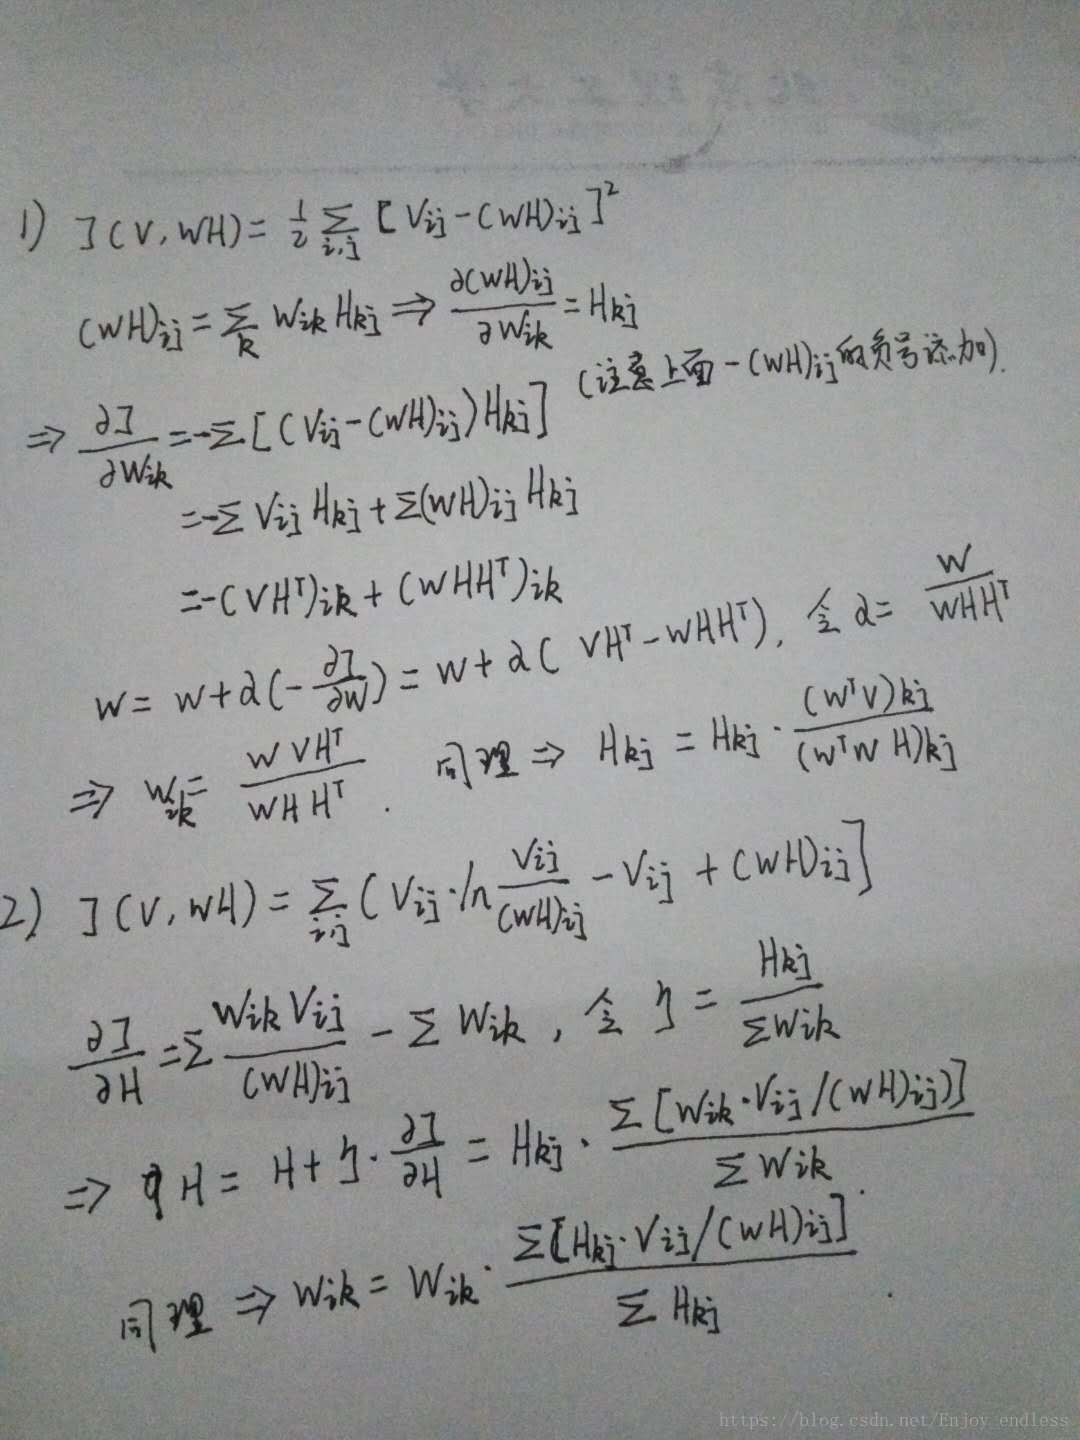 1) J(V,WH) = 1/2 Σ_{i,j} [V_{ij} - (WH)_{ij}]²
(WH)_{ij} = Σ_k W_{ik} H_{kj} ⇒ ∂(WH)_{ij}/∂W_{ik} = H_{kj}
(注意上面 -(WH)_{ij} 的负号添加).
⇒ ∂J/∂W_{ik} = -Σ[(V_{ij} - (WH)_{ij})H_{kj}]
= -Σ V_{ij} H_{kj} + Σ(WH)_{ij} H_{kj}
= -(VH^T)_{ik} + (WHH^T)_{ik}
W = W + α(-∂J/∂W) = W + α(VH^T - WHH^T), 令 α = W/WHH^T
⇒ W_{ik} = WVH^T/WHH^T. 同理 ⇒ H_{kj} = H_{kj} · (W^TV)_{kj}/(W^TWH)_{kj}
2) J(V,WH) = Σ_{i,j} (V_{ij}·ln V_{ij}/(WH)_{ij} - V_{ij} + (WH)_{ij}]
∂J/∂H = Σ W_{ik}V_{ij}/(WH)_{ij} - Σ W_{ik}, 令 η = H_{kj}/ΣW_{ik}
⇒ H = H + η·∂J/∂H = H_{kj} · Σ[W_{ik}·V_{ij}/(WH)_{ij})]/ΣW_{ik}.
同理 ⇒ W_{ik} = W_{ik} · Σ[H_{kj}·V_{ij}/(WH)_{ij}]/ΣH_{kj}.
https://blog.csdn.net/Enjoy_endless